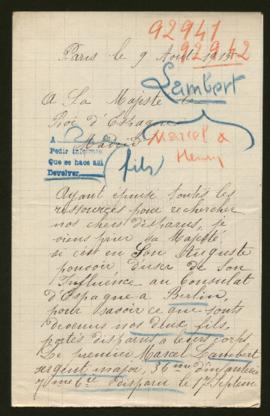 92941
92942
Paris le 9 Août 1915
Lambert
A Sa Majesté le
Roi d'Espagne
Madrid
Marcel &
Henri
(fils)
A
Pedir informes
Que se hace así
Devolver.
Ayant épuisé toutes les
ressources pour rechercher
nos chers disparus, je
viens prier Sa Majesté
si c'est en Son Auguste
pouvoir d'user de Son
Influence au Consulat
d'Espagne à Berlin,
pour savoir ce que sont
devenus nos deux fils,
portés disparus à leurs corps.
Le premier Marcel Lambert
sergent major, 36me d'infanterie
Cie disparu le 17 Septem